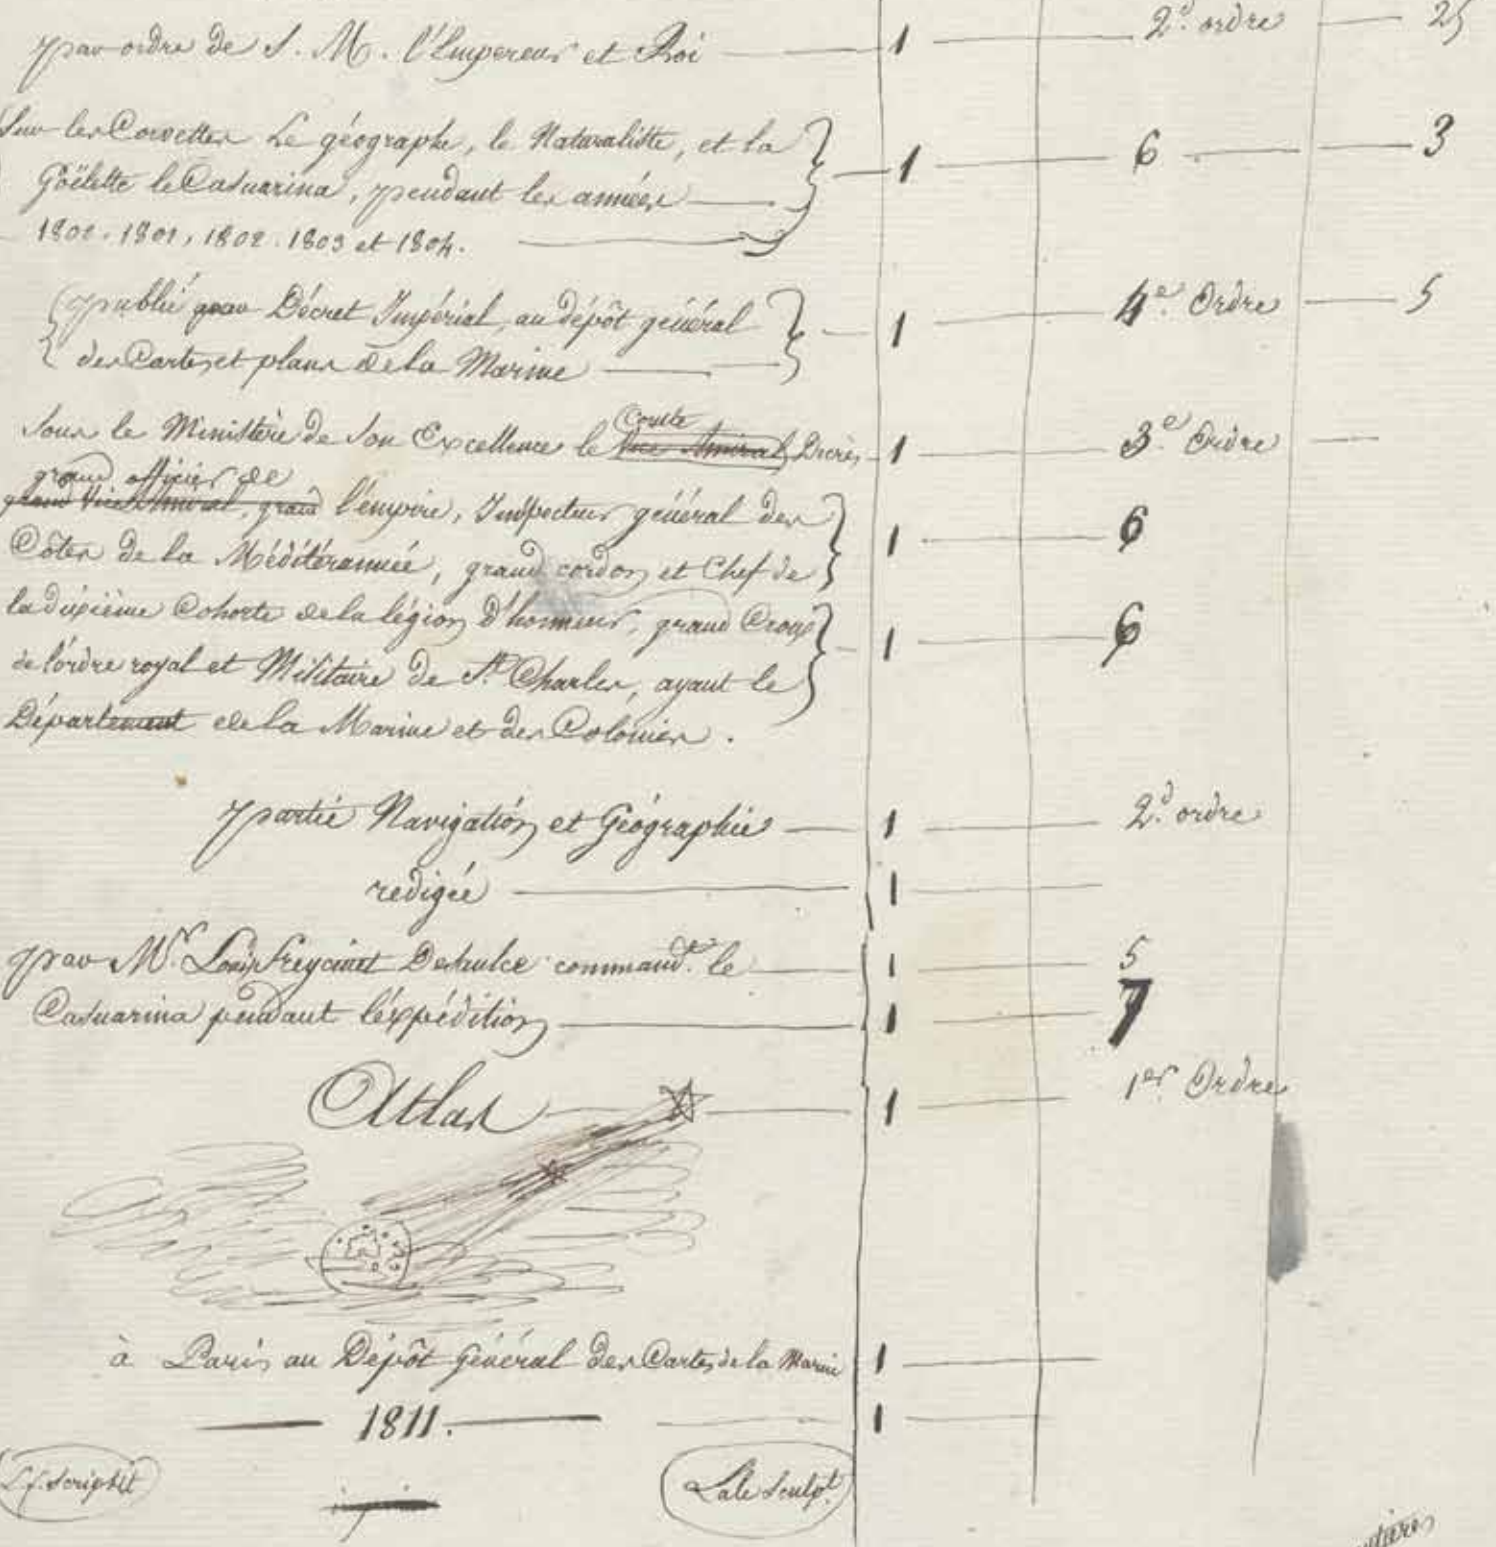 par ordre de S. M. l'Empereur et Roi — 1 — 2.d ordre — 25
Sur les Corvettes Le géographe, le Naturaliste, et la
Goëlette le Casuarina, pendant les années — 1 — 6 — 3
1800. 1801, 1802. 1803 et 1804.
publié par Décret Impérial, au dépôt général — 1 — 4.e Ordre — 5
des Cartes et plans de la Marine
Comte
Sous le Ministère de Son Excellence le Vice Amiral Decrès — 1 — 3.e Ordre —
grand officier de
grand Vice Amiral, grand l'empire, Inspecteur général des
Côtes de la Méditéranneé, grand cordon et Chef de — 1 — 6
la dixième Cohorte de la légion d'honneur, grand Croix
de l'ordre royal et Militaire de St. Charles, ayant le — 1 — 6
Département de la Marine et des Colonies.
partie Navigation et Géographie — 1 — 2.d ordre
redigée — 1 —
par Mr. Louis Freycinet Desaulce command.t le — 1 — 5
Casuarina pendant l'éxpédition — 1 — 7
Atlas — 1 — 1er Ordre
à Paris, au Dépôt Général des Cartes de la Marine 1 —
— 1811. — 1 —
L. f. Scripsit
Lale Sculpt.